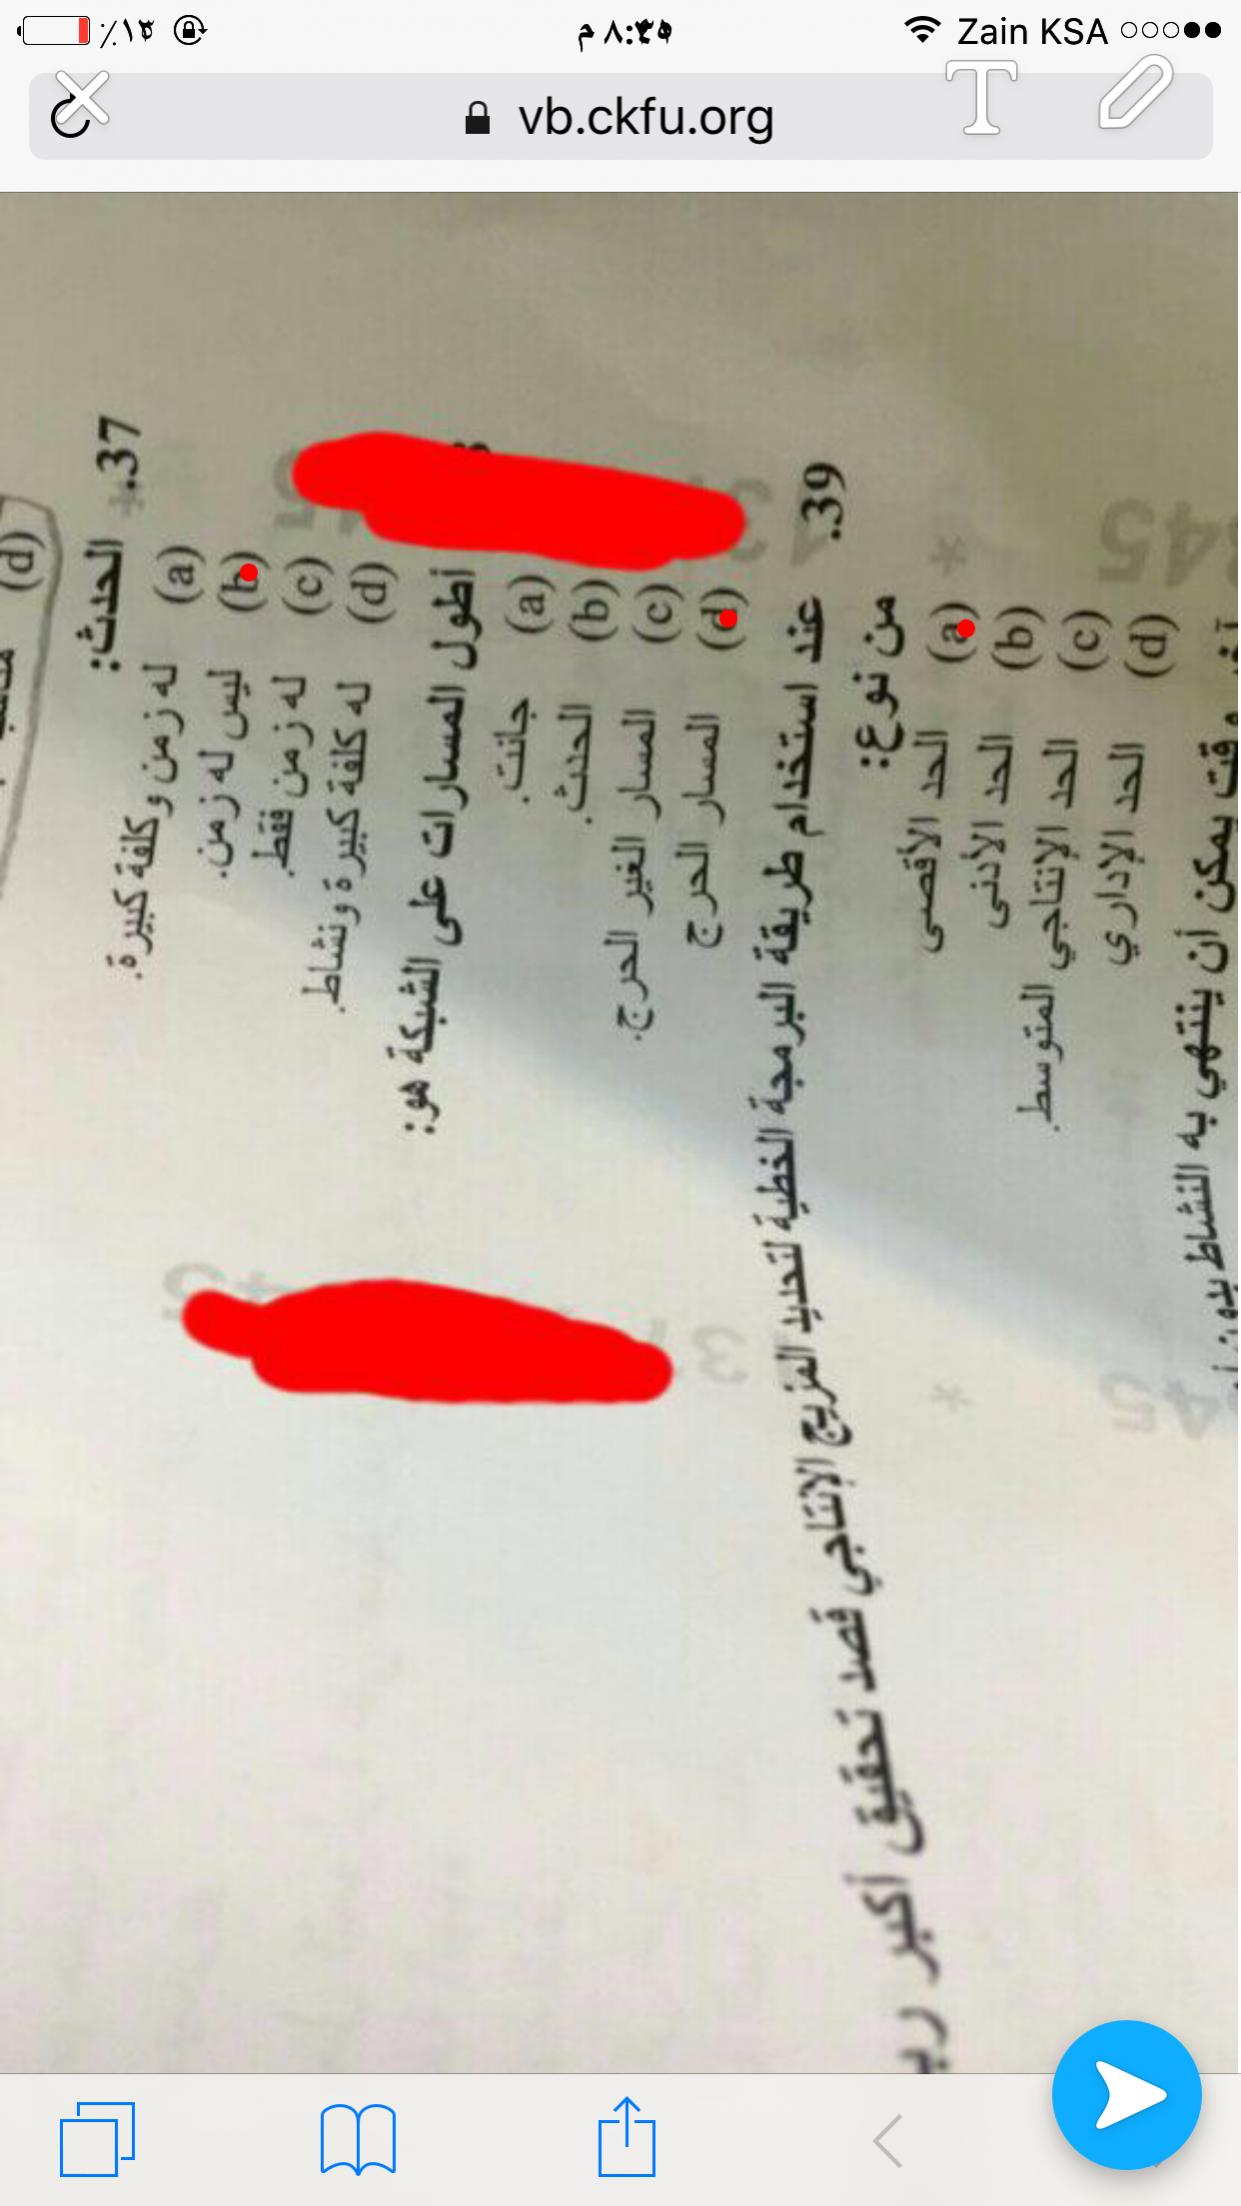 ٪١٣
٨:٣٥ م
Zain KSA
vb.ckfu.org
T
(d)
.37 الحدث:
(a) له زمن وكلفة كبيرة.
(b) ليس له زمن.
(c) له زمن فقط.
(d) له كلفة كبيرة ونشاط.
أطول المسارات على الشبكة هو:
(a) جانت.
(b) الحدث.
(c) المسار الغير الحرج.
(d) المسار الحرج
.39 عند استخدام طريقة البرمجة الخطية لتحديد المزيج الإنتاجي قصد تحقيق أكبر
من نوع:
(a) الحد الأقصى
(b) الحد الأدنى
(c) الحد الإنتاجي المتوسط.
(d) الحد الإداري
وقت يمكن أن ينتهي به النشاط بدون